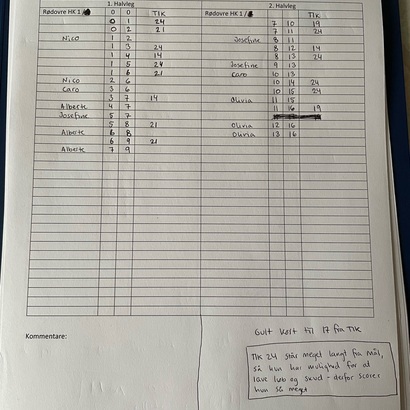 1. Halvleg
Rødovre HK 1 / 0 0 TIK
0 1 24
0 2 21
Nico 1 2
1 3 24
1 4 14
1 5 24
1 6 21
Nico 2 6
Caro 3 6
3 7 14
Alberte 4 7
Josefine 5 7
5 8 21
Alberte 6 8
6 9 21
Alberte 7 9
2. Halvleg
Rødovre HK 1 / TIK
7 10 19
7 11 24
Josefine 8 11
8 12 14
8 13 24
Josefine 9 13
Caro 10 13
10 14 24
10 15 24
Olivia 11 15
11 16 19
Olivia 12 16
Olivia 13 16
Kommentarer:
Gult kort til 17 fra TIK
TIK 24 står meget langt fra mål,
så hun har mulighed for at
lave løb og skud - derfor scorer
hun så meget